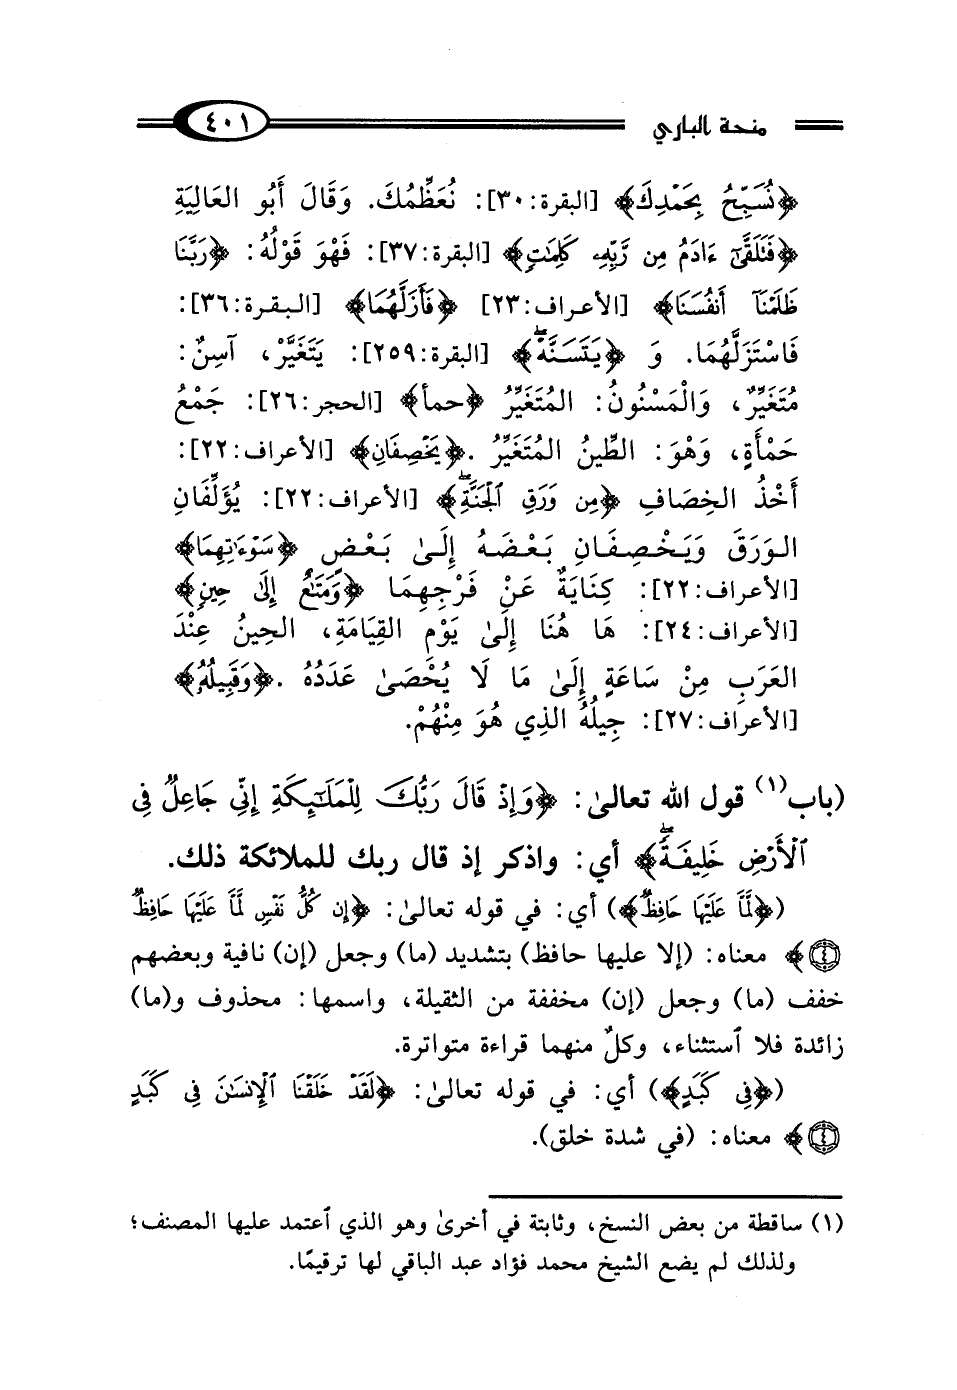 منحة الباري
٤٠١
﴿نُسَبِّحُ بِحَمْدِكَ﴾ [البقرة: ٣٠]: نُعَظِّمُكَ. وَقَالَ أَبُو العَالِيَةِ
﴿فَتَلَقَّىٰٓ ءَادَمُ مِن رَّبِّهِۦ كَلِمَٰتٍ﴾ [البقرة: ٣٧]: فَهْوَ قَوْلُهُ: ﴿رَبَّنَا
ظَلَمْنَآ أَنفُسَنَا﴾ [الأعراف: ٢٣] ﴿فَأَزَلَّهُمَا﴾ [البقرة: ٣٦]:
فَاسْتَزَلَّهُمَا. وَ ﴿يَتَسَنَّهْۖ﴾ [البقرة: ٢٥٩]: يَتَغَيَّرْ، آسِنٌ:
مُتَغَيِّرٌ، وَالْمَسْنُونُ: المُتَغَيِّرُ ﴿حمأ﴾ [الحجر: ٢٦]: جَمْعُ
حَمْأَةٍ، وَهْوَ: الطِّينُ المُتَغَيِّرُ. ﴿يَخْصِفَانِ﴾ [الأعراف: ٢٢]:
أَخْذُ الخِصَافِ ﴿مِن وَرَقِ ٱلْجَنَّةِۖ﴾ [الأعراف: ٢٢]: يُؤَلِّفَانِ
الوَرَقَ وَيَخْصِفَانِ بَعْضَهُ إِلَىٰ بَعْضٍ ﴿سَوْءَٰتِهِمَا﴾
[الأعراف: ٢٢]: كِنَايَةٌ عَنْ فَرْجِهِمَا ﴿وَمَتَٰعٌ إِلَىٰ حِينٍ﴾
[الأعراف: ٢٤]: هَا هُنَا إِلَىٰ يَوْمِ القِيَامَةِ، الحِينُ عِنْدَ
العَرَبِ مِنْ سَاعَةٍ إِلَىٰ مَا لَا يُحْصَىٰ عَدَدُهُ. ﴿وَقَبِيلُهُۥ﴾
[الأعراف: ٢٧]: جِيلُهُ الذِي هُوَ مِنْهُمْ.
(باب(١) قول الله تعالىٰ: ﴿وَإِذْ قَالَ رَبُّكَ لِلْمَلَٰٓئِكَةِ إِنِّي جَاعِلٌ فِي
ٱلْأَرْضِ خَلِيفَةًۖ﴾ أي: واذكر إذ قال ربك للملائكة ذلك.
(﴿لَّمَّا عَلَيْهَا حَافِظٌ﴾) أي: في قوله تعالىٰ: ﴿إِن كُلُّ نَفْسٍ لَّمَّا عَلَيْهَا حَافِظٌ
۝٤﴾ معناه: (إلا عليها حافظ) بتشديد (ما) وجعل (إن) نافية وبعضهم
خفف (ما) وجعل (إن) مخففة من الثقيلة، واسمها: محذوف و(ما)
زائدة فلا ٱستثناء، وكلٌ منهما قراءة متواترة.
(﴿فِي كَبَدٍ﴾) أي: في قوله تعالىٰ: ﴿لَقَدْ خَلَقْنَا ٱلْإِنسَٰنَ فِي كَبَدٍ
۝٤﴾ معناه: (في شدة خلق).
(١) ساقطة من بعض النسخ، وثابتة في أخرىٰ وهو الذي ٱعتمد عليها المصنف؛
ولذلك لم يضع الشيخ محمد فؤاد عبد الباقي لها ترقيمًا.